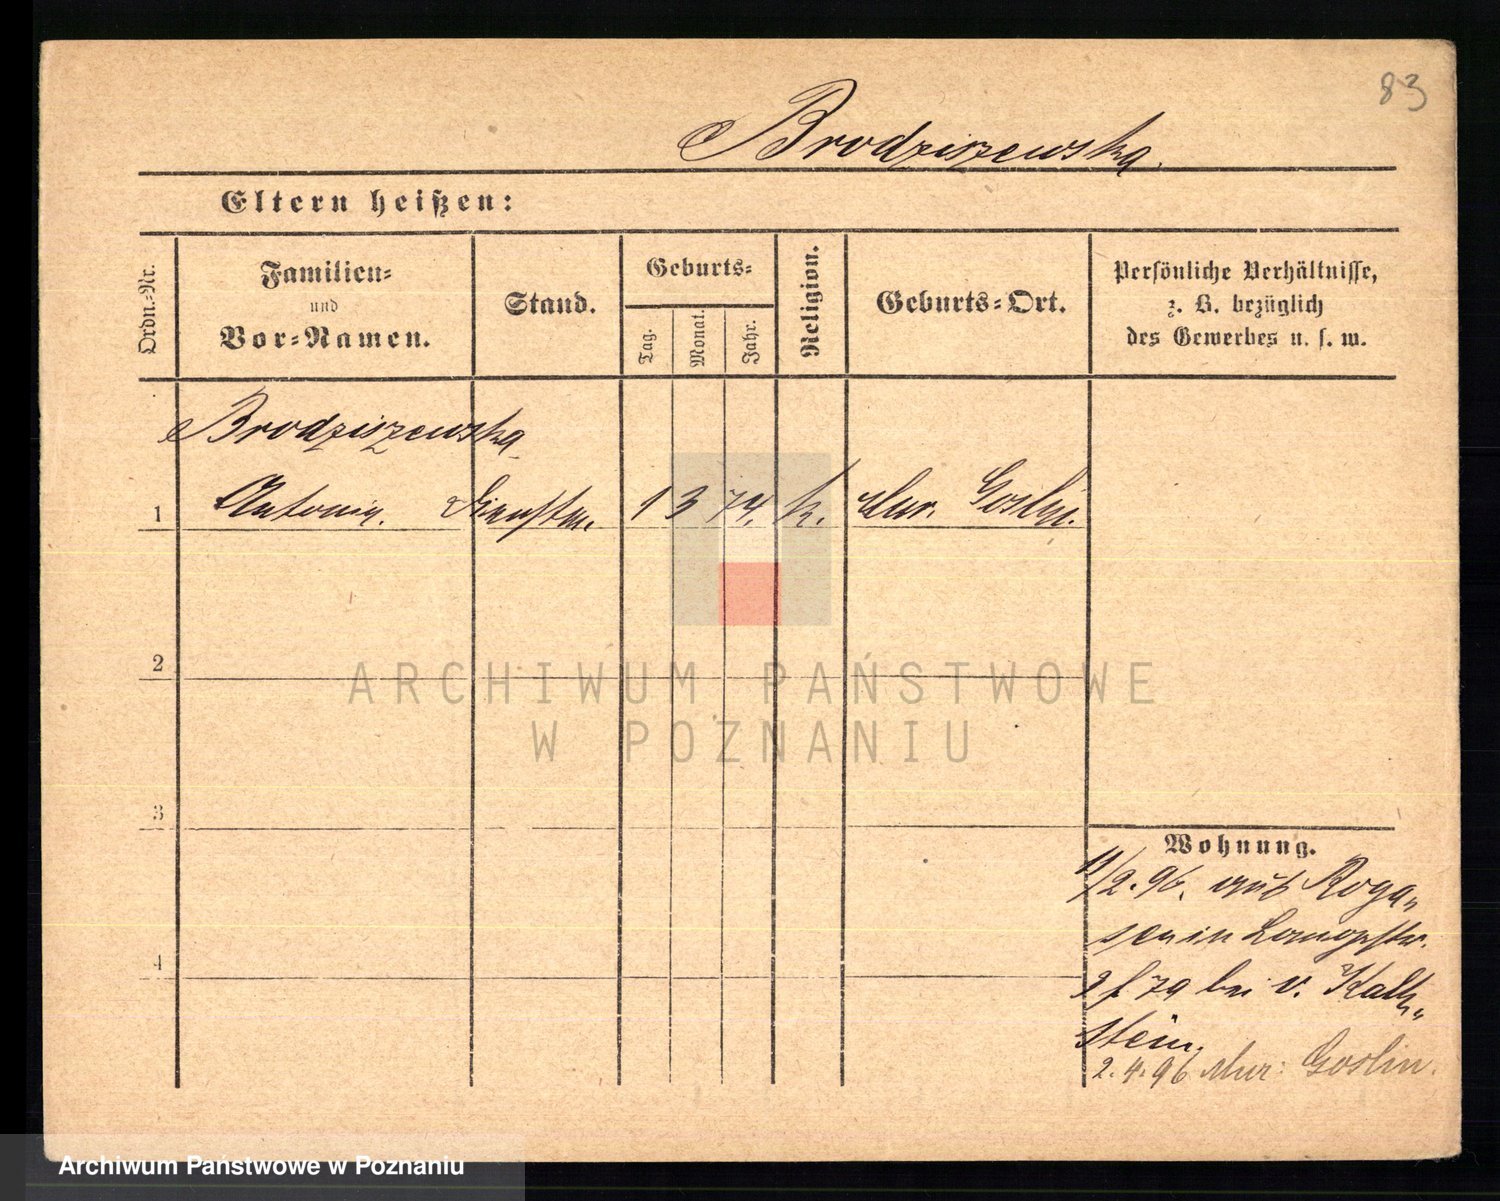 83
Brodziszewska
Eltern heißen:
Ordn.-Nr.
Familien-
und
Vor-Namen.
Stand.
Geburts-
Tag.
Monat.
Jahr.
Religion.
Geburts-Ort.
Persönliche Verhältnisse,
z. B. bezüglich
des Gewerbes u. s. w.
Brodziszewska
1 Antonie. 1 3 74. k. Mur. Goslin.
2
ARCHIWUM PAŃSTWOWE
W POZNANIU
3
Wohnung.
11/2. 96. aus Roga„
sen in
bei v. Kalk„
stein.
4
2. 4. 96 Mur: Goslin.
Archiwum Państwowe w Poznaniu